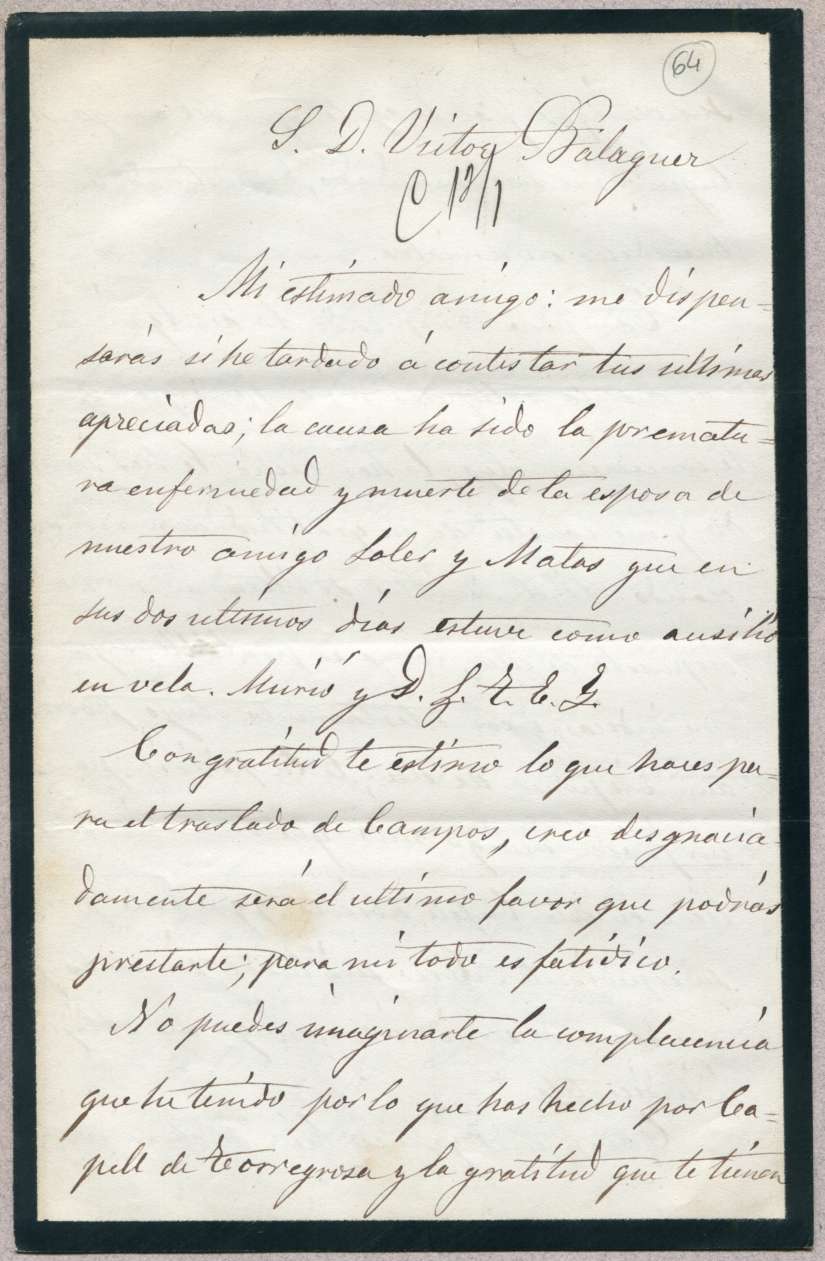 64
S. D. Victor Balaguer
C 12/1
Mi estimado amigo: me dispen=
sarás si he tardado á contestar tus ultimas
apreciadas; la causa ha sido la prematu=
ra enfermedad y muerte de la esposa de
nuestro amigo Soler y Matas que en
sus dos ultimos días estuve como ausilio
en vela. Murió y D. S. T. E. G.
Con gratitud te estimo lo que haces pa=
ra el traslado de Campos, creo desgracia
damente será el ultimo favor que podrás
prestarte; para mi todo es fatídico.
No puedes imaginarte la complacencia
que he tenido por lo que has hecho por Ca=
pell de Torregrosa y la gratitud que te tienen